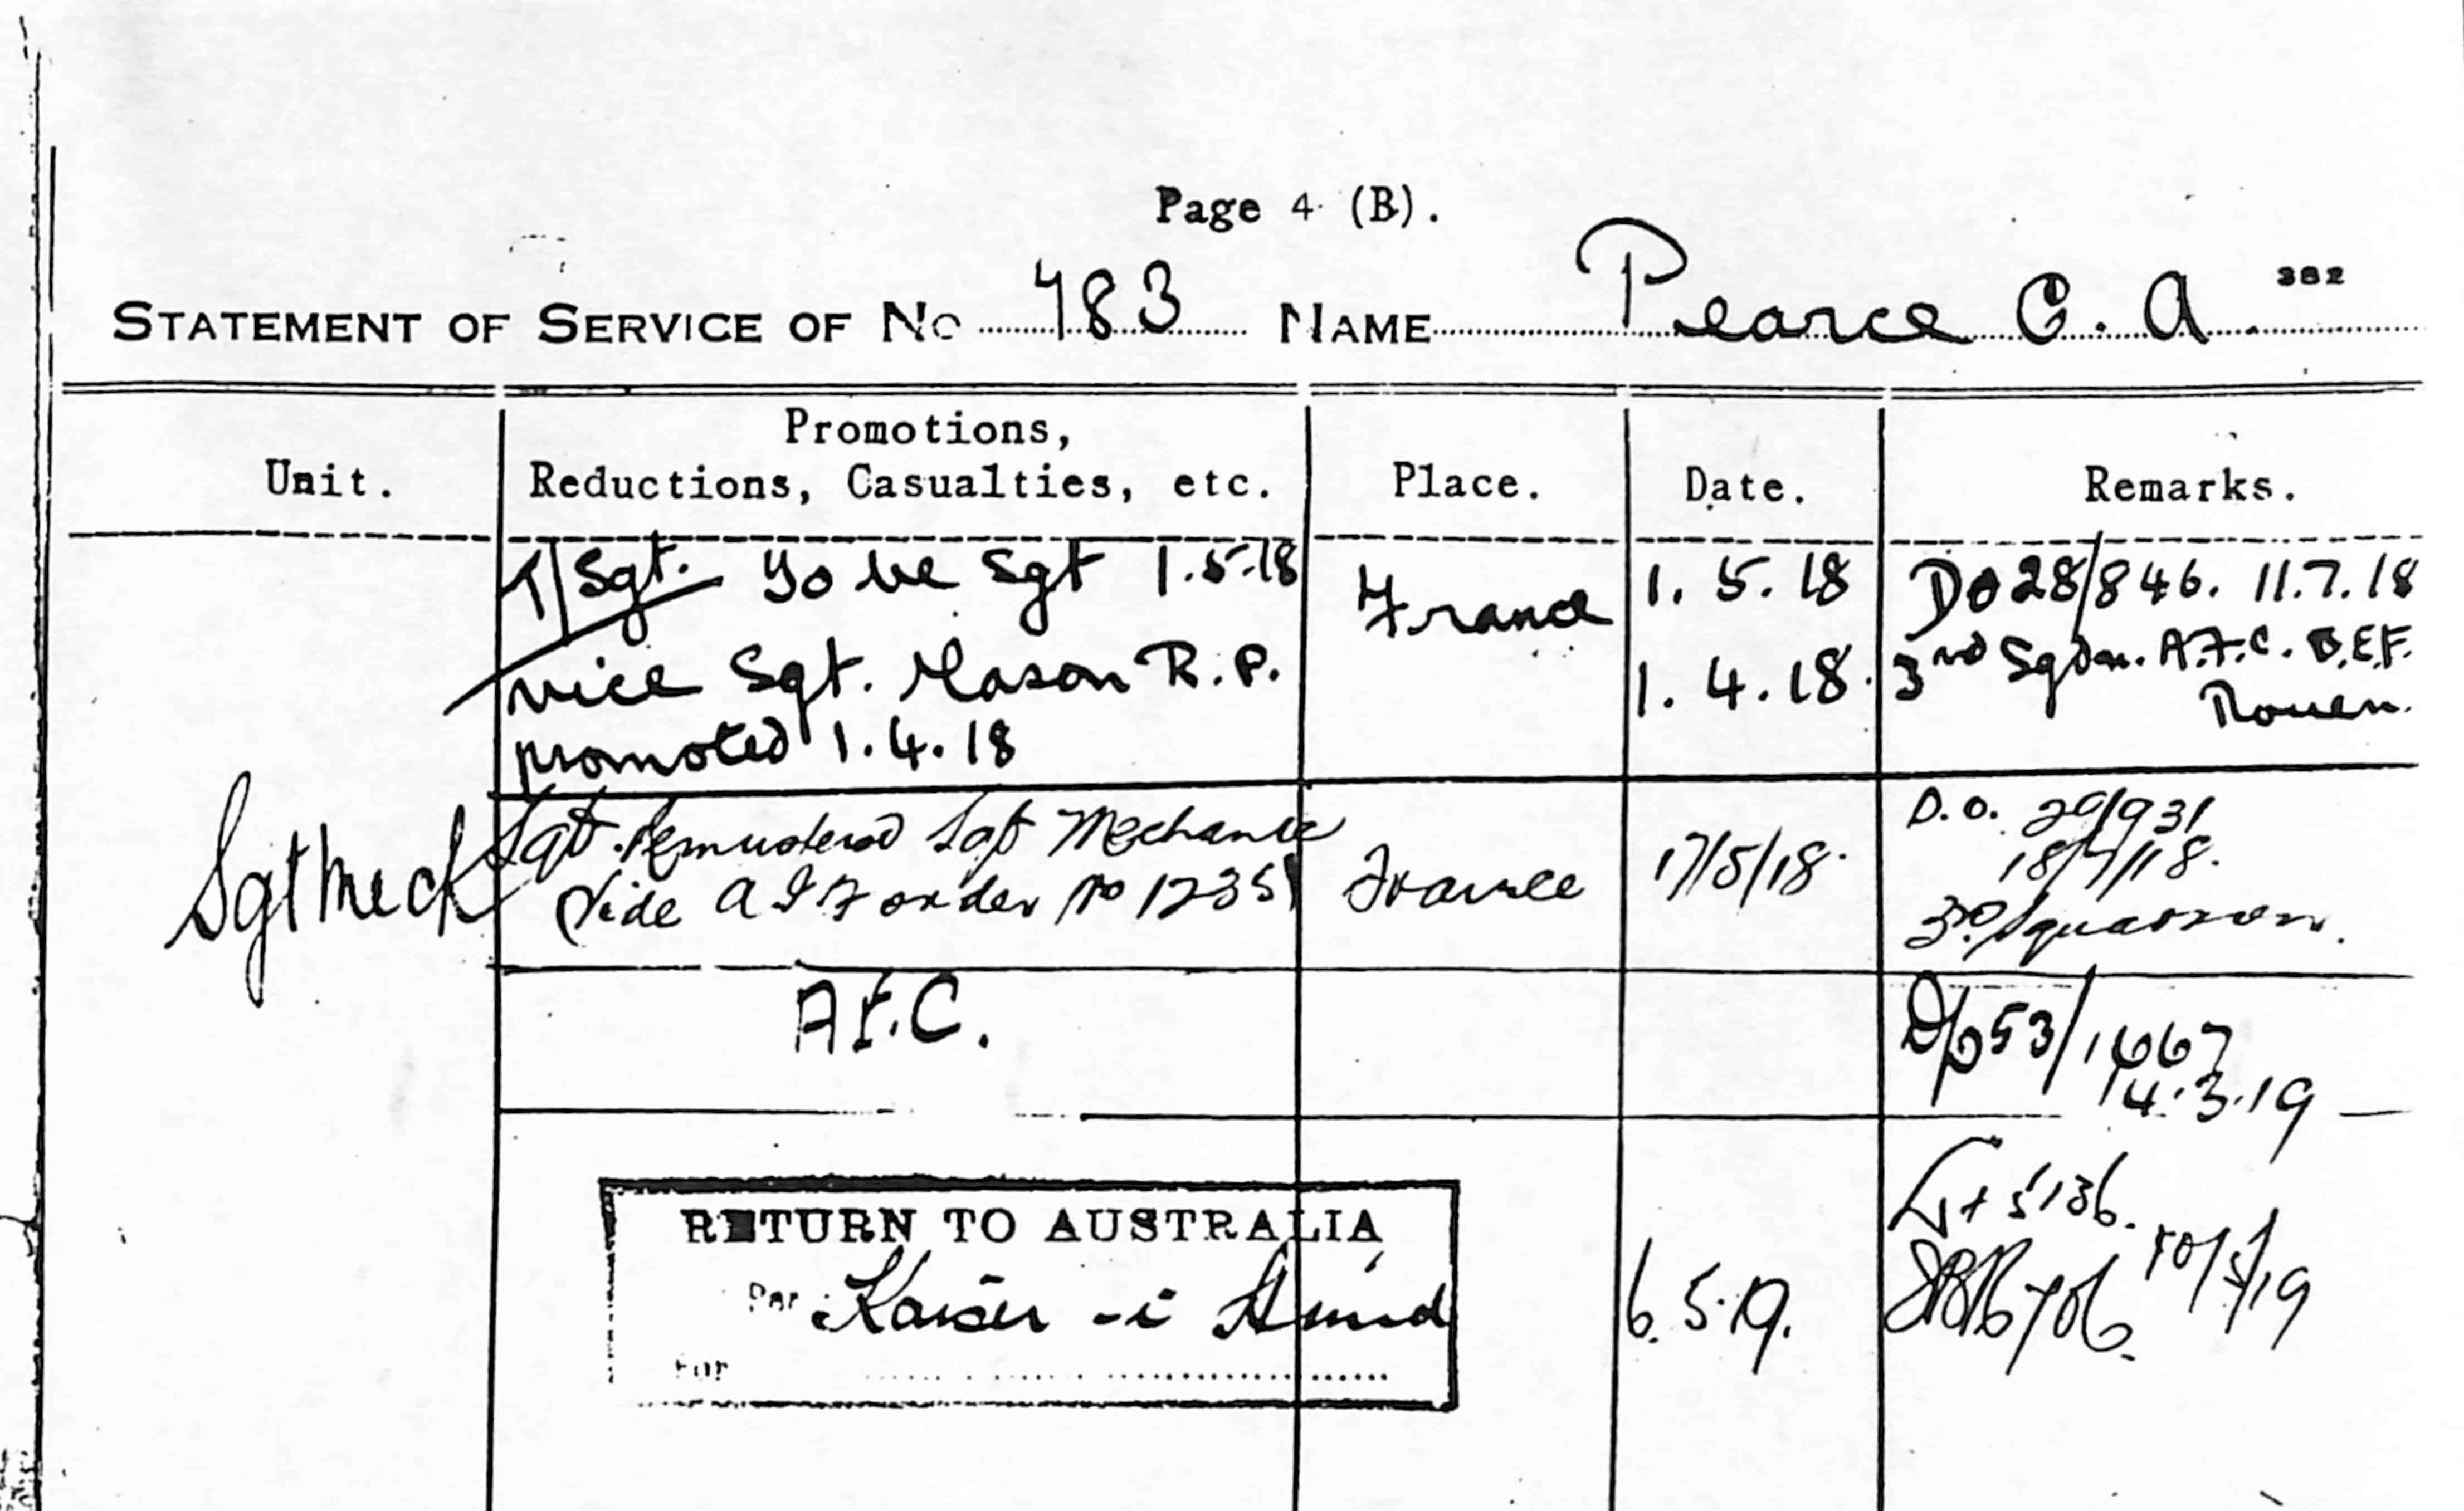 Page 4 (B).
STATEMENT OF SERVICE OF No 483 NAME Pearce C. A 382
Unit. Promotions, Reductions, Casualties, etc. Place. Date. Remarks.
T/Sgt. To be Sgt 1.5.18 France 1. 5. 18 DO 28/846. 11.7.18
vice Sgt. Mason R.P. 1. 4. 18. 3rd Sqdn. A.F.C. B.E.F.
promoted 1.4.18 Rouen.
Sgt Mech Sgt. Remustered Sgt Mechanic France 17/5/18. D.O. 29/931
Vide A I F order No 1235 18/7/18.
3rd Squadron.
A.F.C. D/O 53/1667
14.3.19
RETURN TO AUSTRALIA 5136.
Per Kaiser -i Hind 6.5.19.
For